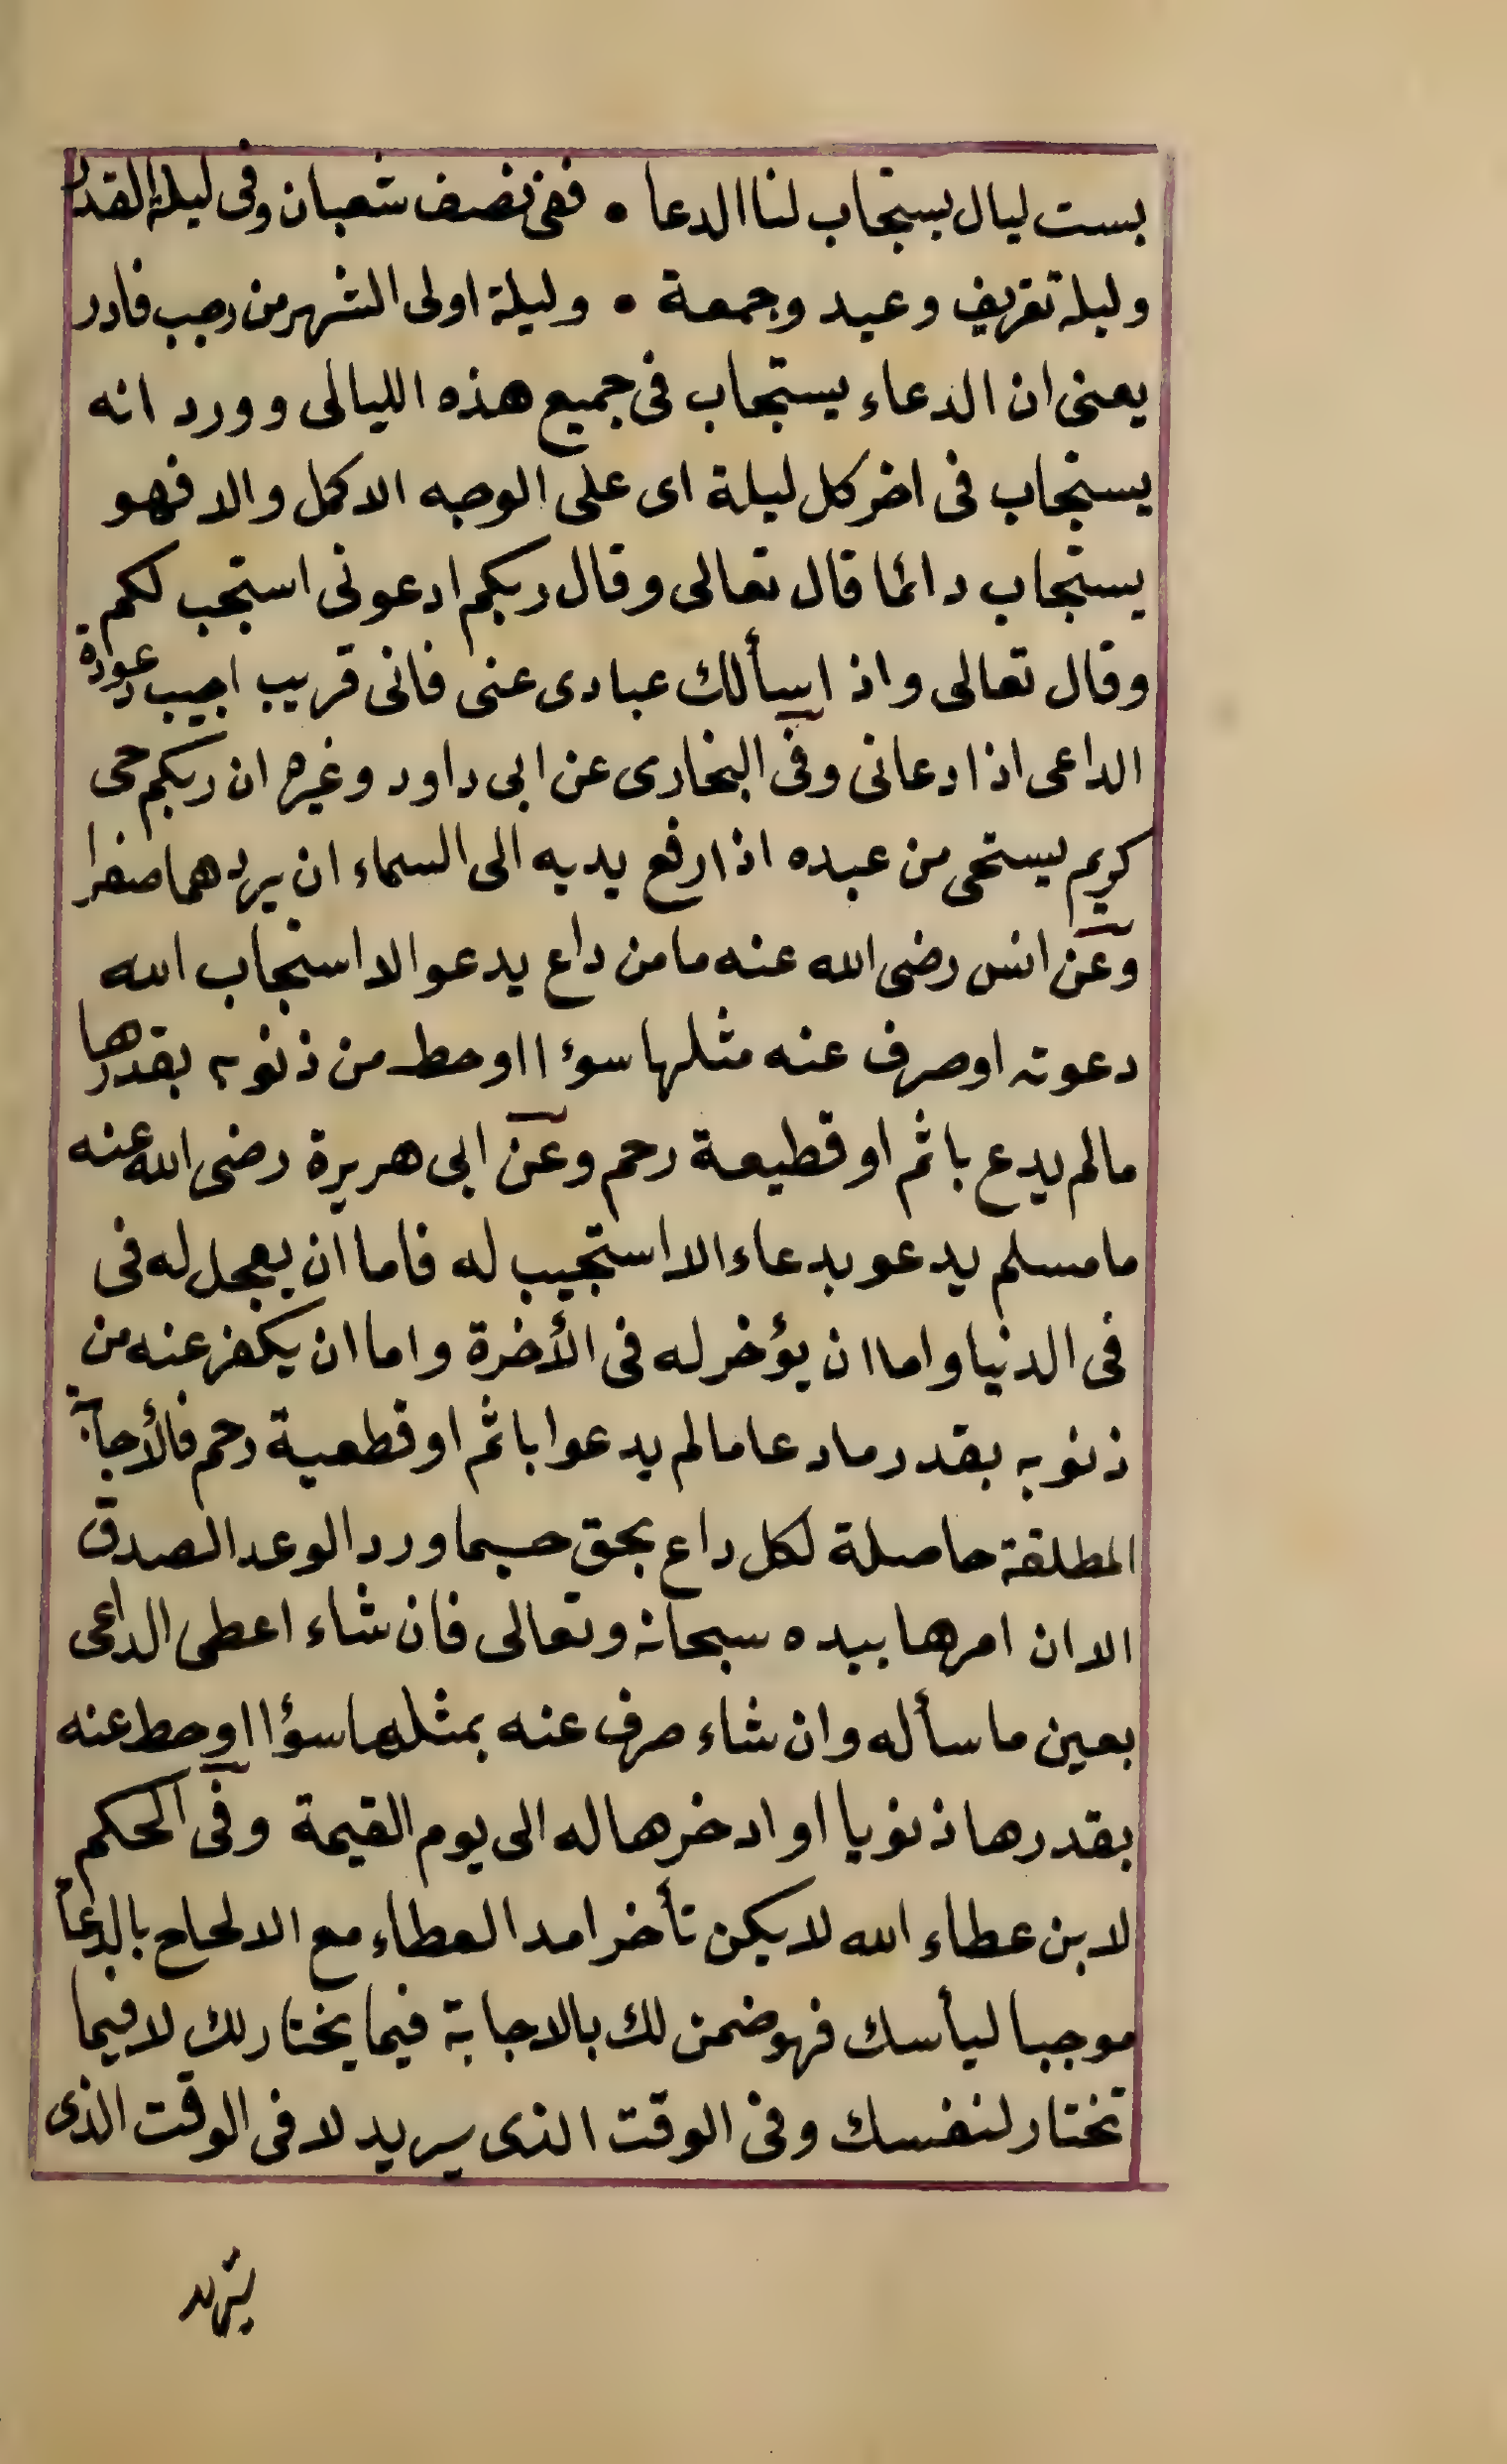 بست ليال يستجاب لنا الدعا • ففى نصف شعبان وفى ليلة القدر
وليلة تعريف وعيد وجمعة • وليلة اولى الشهر من رجب فادر
يعنى ان الدعاء يستجاب فى جميع هذه الليالى وورد انه
يستجاب فى اخر كل ليلة اى على الوجه الاكمل والا فهو
يستجاب دائما قال تعالى وقال ربكم ادعونى استجب لكم
وقال تعالى واذ اسألك عبادى عنى فانى قريب اجيب دعوة
الداعى اذا دعانى وفى البخارى عن ابى داود وغيره ان ربكم حى
كريم يستحى من عبده اذا رفع يديه الى السماء ان يردهما صفرا
وعن انس رضى الله عنه ما من داع يدعو الا استجاب الله
دعوته او صرف عنه مثلها سوءا او حط من ذنوبه بقدرها
مالم يدع باثم او قطيعة رحم وعن ابى هريرة رضى الله عنه
ما مسلم يدعو بدعاء الا استجيب له فاما ان يعجل له فى
فى الدنيا واما ان يؤخر له فى الأخرة واما ان يكفر عنه من
ذنوبه بقدر ما دعا مالم يدعوا باثم او قطعية رحم فالأجابة
المطلقة حاصلة لكل داع بحق حسبما ورد الوعد الصدق
الا ان امرها بيده سبحانه وتعالى فان شاء اعطى الداعى
بعين ما سأله وان شاء صرف عنه بمثلها سؤا او حط عنه
بقدرها ذنوبا او ادخرها له الى يوم القيمة وفى الحكم
لابن عطاء الله لا يكن تأخر امد العطاء مع الالحاح بالدعاء
موجبا ليأسك فهو ضمن لك بالاجابة فيما يختار لك لا فيما
تختار لنفسك وفى الوقت الذى يريد لا فى الوقت الذى
تريد